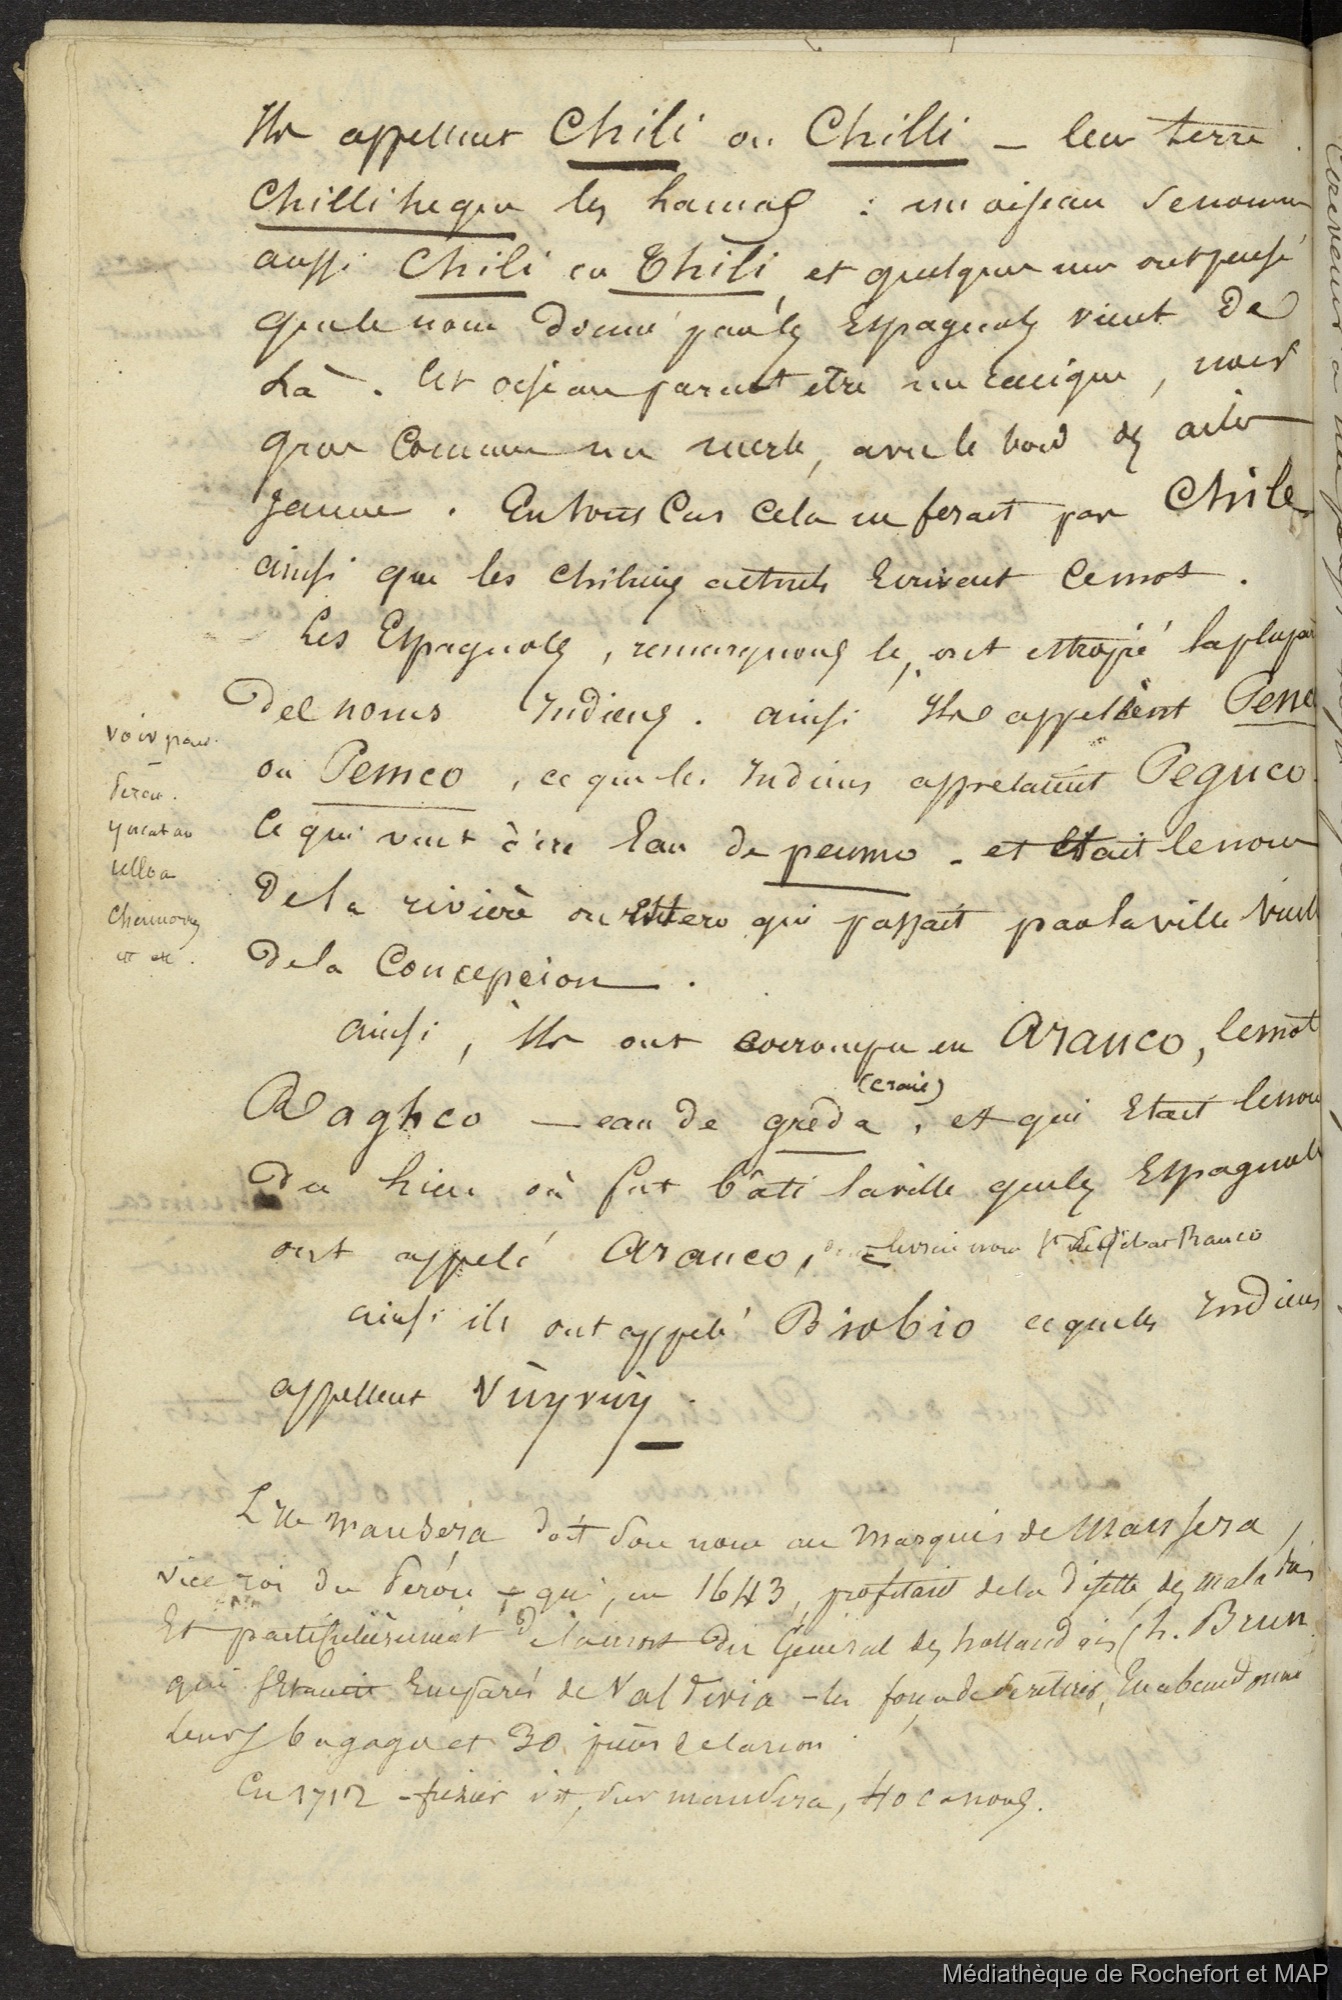 Ils appellent Chili ou Chilli – leur terre
Chillihegue les Lamas : un oiseau se nomme
aussi Chili ou Thili, et quelques uns ont pensé
que le nom donné par les Espagnols vient de
Là. Cet oiseau parait etre un cacique, noir
gros comme un merle, avec le bord des ailes
jaune. En tous cas cela ne ferait pas Chile
ainsi que les chiliens actuels Ecrivent ce mot.
Les Espagnols, remarquons le, ont estropié la plupart
Des noms Indiens. ainsi Ils appellent Penco
ou Pemco, ce que les Indiens appelaient Peguco.
Ce qui veut dire Eau de peumo – et Etait le nom
De la rivière ou Estero qui passait par la ville vieille
De la Concepcion.
ainsi, Ils ont corrompu en Arauco, le mot
(craie)
Raghco – eau de greda, et qui Etait le nom
Du lieu où fut bâti la ville que les Espagnols
ont appelé Arauco, Rauco
ainsi ils ont appelé Biobio ce que les Indiens
appellent Vuyvuy
voir pour
Pérou.
yucatan
ulloa
et etc.
L'Ile mansera doit son nom au Marquis de Mansera,
Vice roi du Pérou – qui, en 1643, profitant de la disette, des maladies
Et particulièrement de la mort du Général des hollandais (h. Brun
qui s'Etaient Emparés de Valdivia – les força de se retirer, En abandonnant
Leurs bagages et 30 pièces de canon
En 1712 – frézier vit, sur mansera, 40 canons.